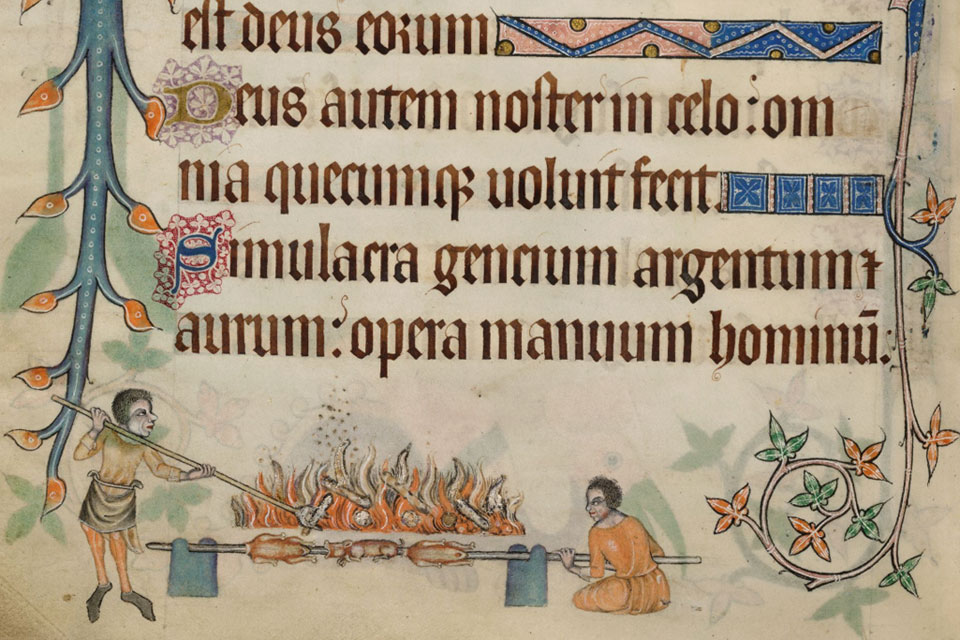 est deus eorum
Deus autem noster in celo : om
nia quecumqꝫ uoluit fecit
Simulacra gencium argentum ⁊
aurum : opera manuum hominū.